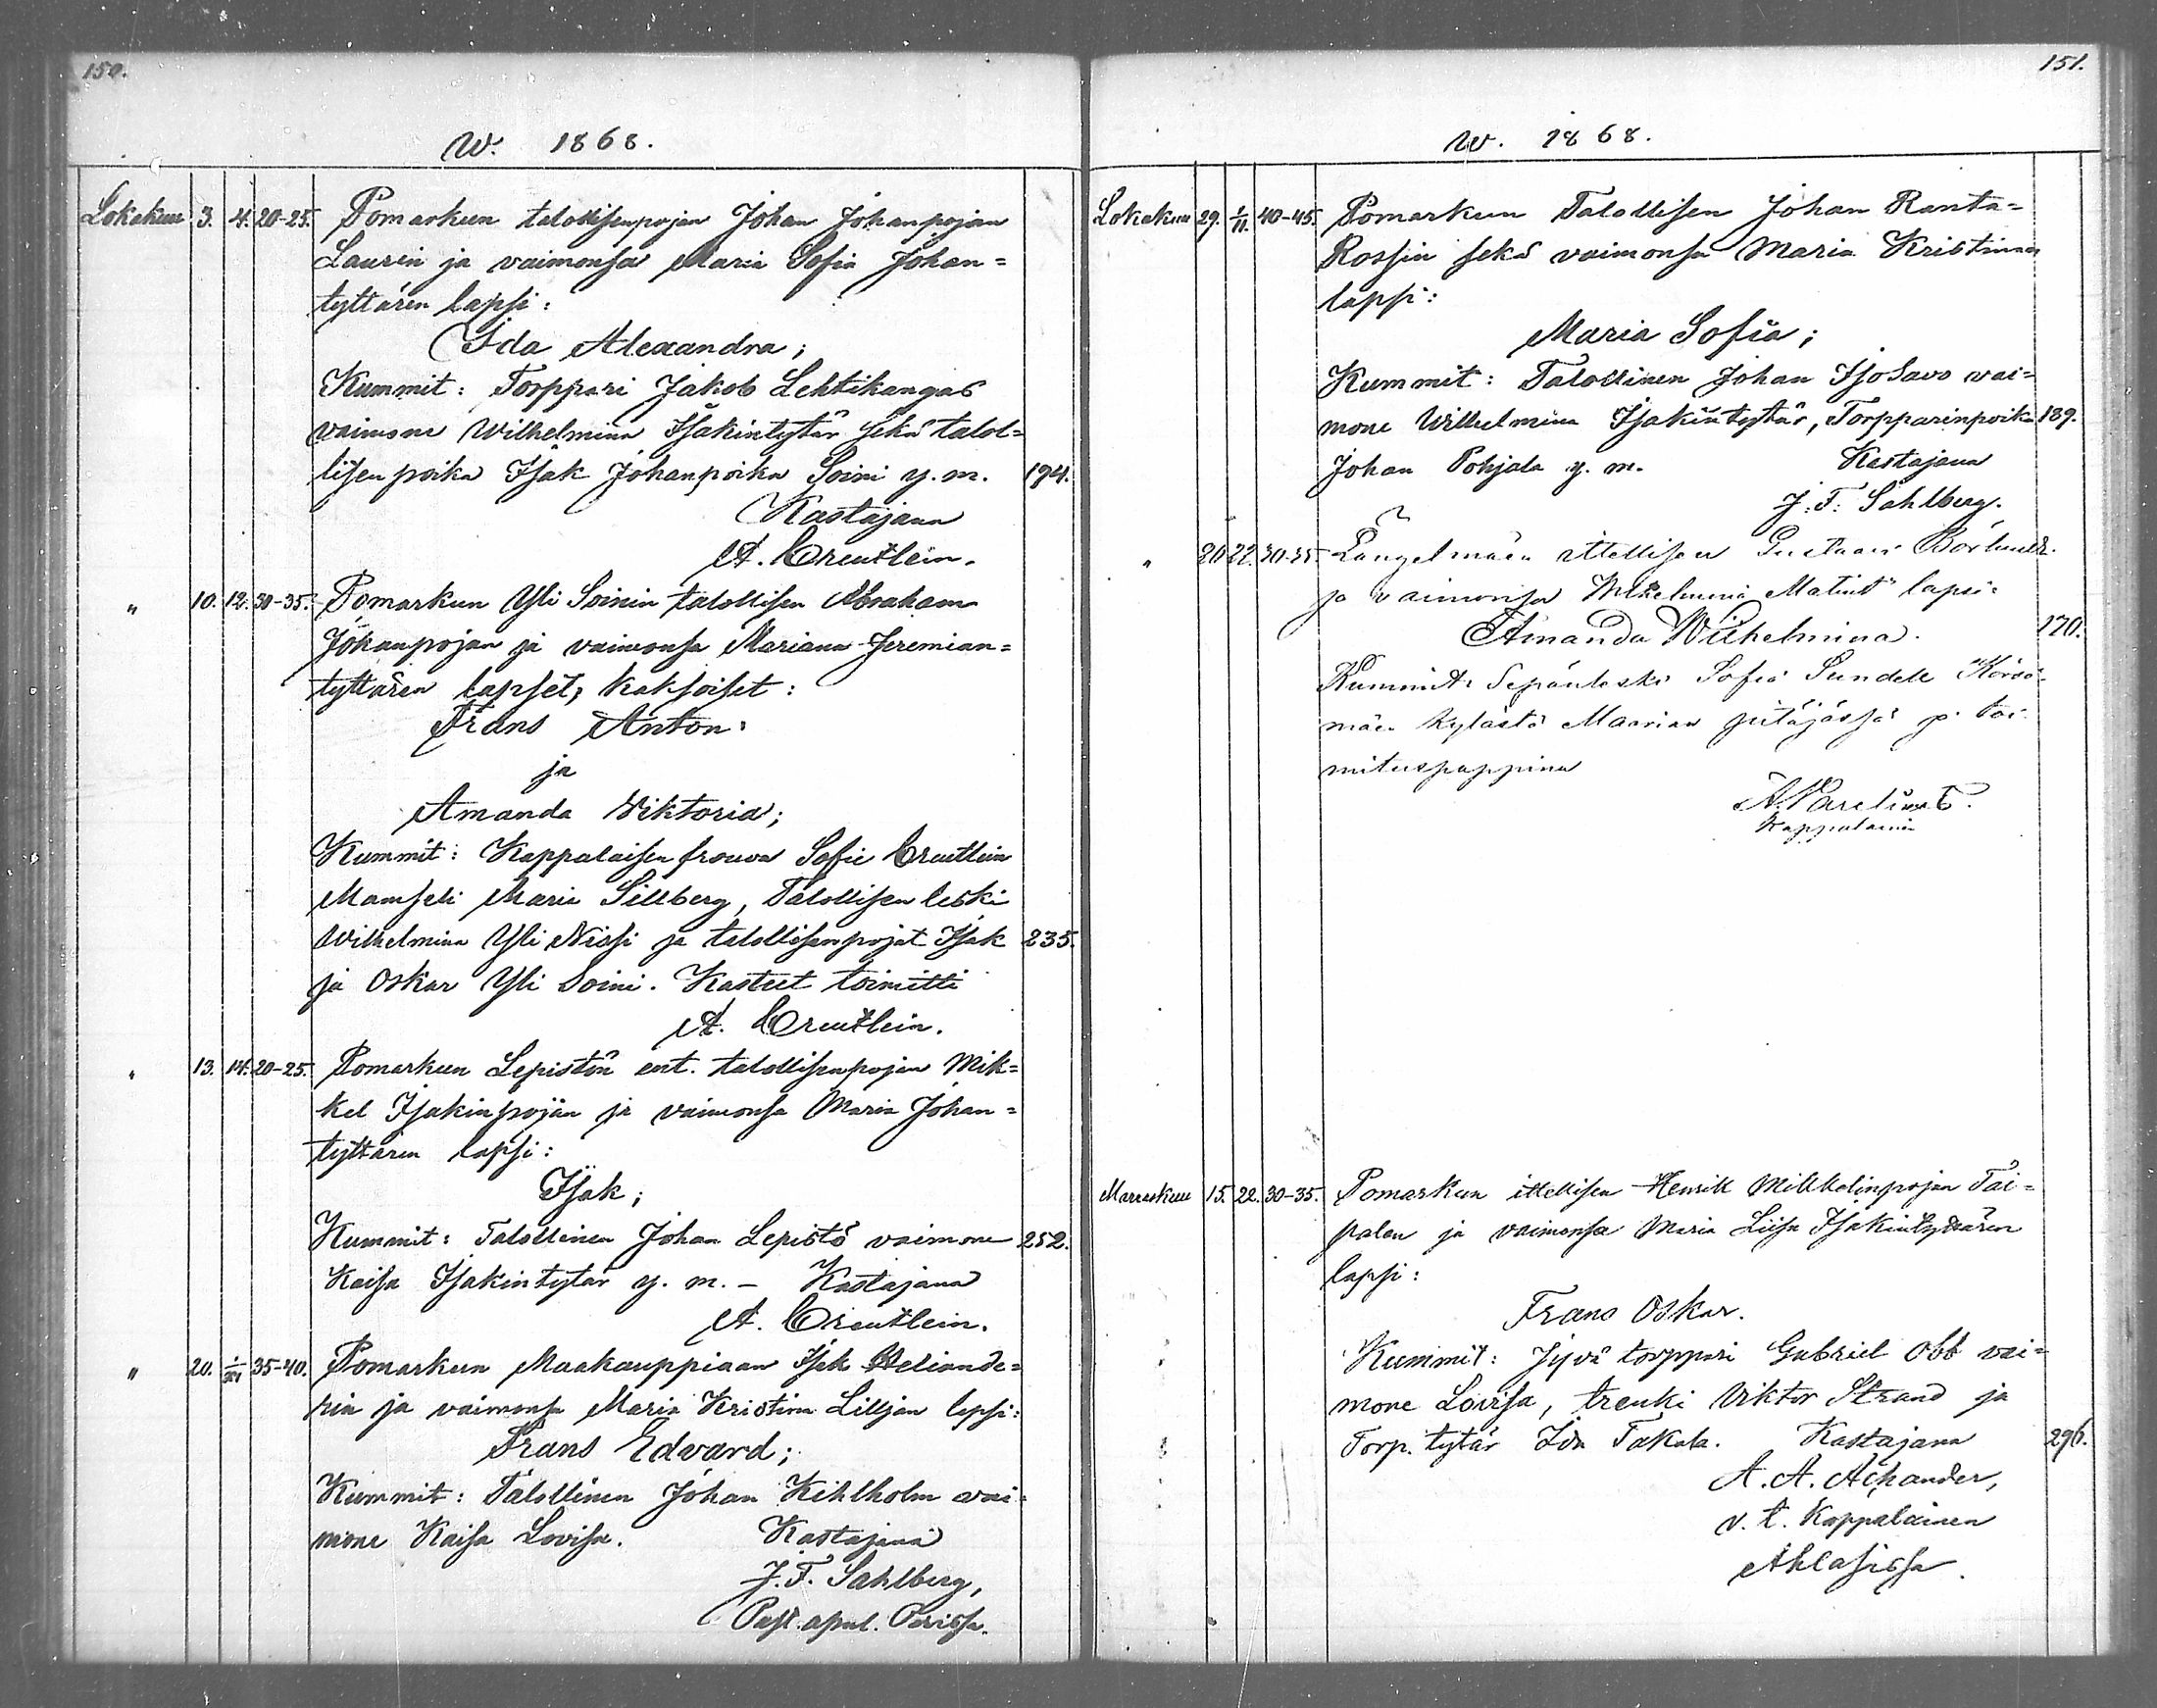 150.
W. 1868.
Lokakuu 3. 4. 20-25. Pomarkun talollisenpojan Johan Johanpojan
Laurin ja vaimonsa Maria Sofia Johan=
tyttären lapsi:
Ida Alexandra;
Kummit: Torppari Jakob Lehtikangas
vaimone Wilhelmina Isakintytär sekä talol=
lisen poika Isak Johanpoika Soini y. m. 194.
Kastajana
A. Creutlein.
" 10. 12. 30-35. Pomarkun Yli Soinin talollisen Abraham
Johanpojan ja vaimonsa Mariana Jeremian=
tyttären lapset, kaksoiset:
Frans Anton:
ja
Amanda Viktoria;
Kummit: Kappalaisen frouva Sofie Creutlein
Mamseli Maria Sillberg, Talollisen leski
Wilhelmina Yli Niasi ja talollisenpojat Isak 235.
ja Oskar Yli Soini. Kasteet toimitti
A. Creutlein.
" 13. 14. 20-25. Pomarkun Lepistön ent. talollisenpojan Mik=
kel Isakinpojan ja vaimonsa Maria Johan=
tyttären lapsi:
Isak;
Kummit: Talollinen Johan Lepistö vaimone 252.
Kaisa Isakintytär y. m. - Kastajana
A. Creutlein.
" 20. 1/XI 35-40. Pomarkun Maakauppiaan Isak Heliande=
rin ja vaimonsa Maria Kristina Liljan lapsi:
Frans Edvard;
Kummit: Talollinen Johan Kihlholm vai=
mone Kaisa Lovisa. Kastajana
J. F. Sahlberg,
Past. apul. Porissa.
151.
W. 1868.
Lokakuu 29. 1/11. 40-45. Pomarkun Talollisen Johan Ranta=
Rossin sekä vaimonsa Maria Kristinan
lapsi:
Maria Sofia;
Kummit: Talollinen Johan Isosavo vai=
mone Wilhelmina Isakintytär, Torpparinpoika 189.
Johan Pohjala y. m. Kastajana
J. F. Sahlberg.
" 20 22. 30-35. Längelmäen ittellisen Gustaav
ja vaimonsa Wilhelmina lapsi:
Amanda Wilhelmina. 170.
Kummit: Sepänleski Sofia Sundell
mäen kylästä Maarian pitäjässä p. toi
mituspappina
Kappalainen
Marraskuu 15. 22. 30-35. Pomarkun ittellisen Henrik Mikkelinpojan Tai=
palen ja vaimonsa Maria Liisa Isakintyttären
lapsi:
Frans Oskar.
Kummit: Jyvä torppari Gabriel Obb vai=
mone Lovisa, trenki Viktor Strand ja
Torp. tytär Ida Takala. Kastajana 296.
A. A. Achander,
v. t. Kappalainen
Ahlaisissa.